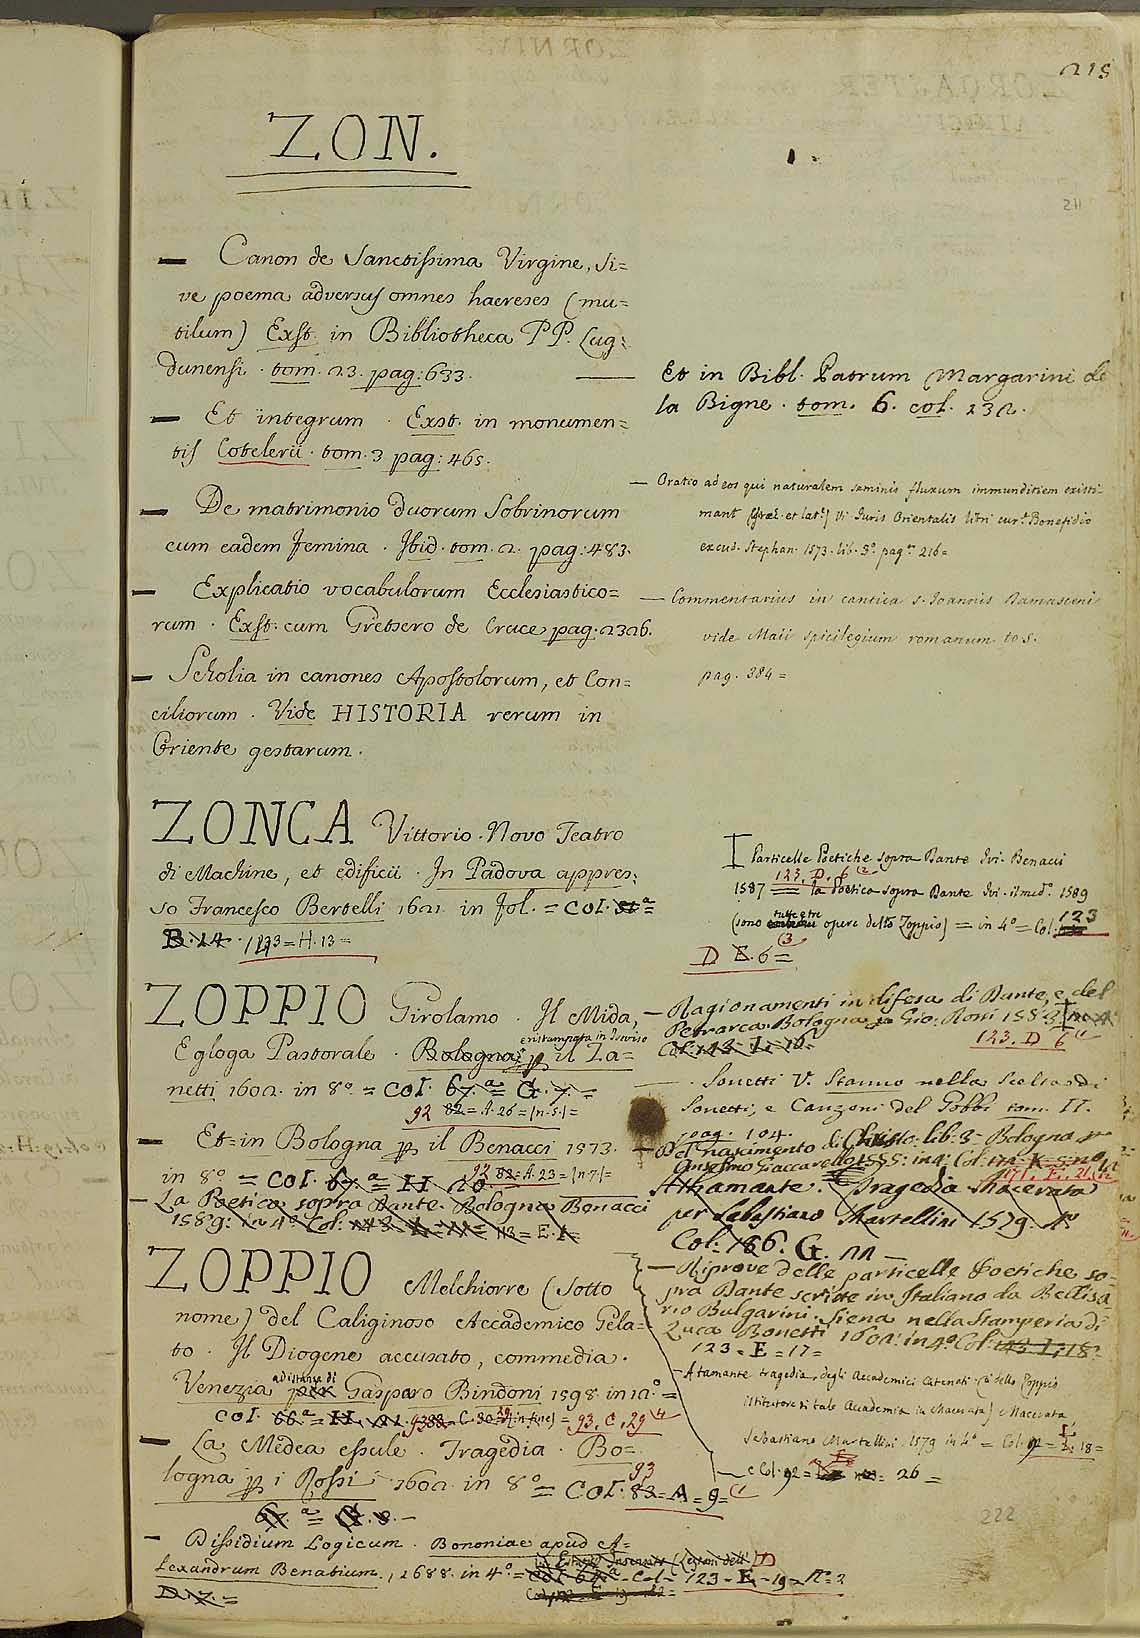 215
ZON.
211
— Canon de Sanctissima Virgine, si=
ve poema adversus omnes haereses (mu=
tilum) Exst. in Bibliotheca PP. Lug:
dunensi. tom. 23. pag: 633.
— Et integrum. Exst. in monumen=
tis Cotelerii. tom. 3 pag: 465.
— De matrimonio duorum Sobrinorum
cum eadem femina. Ibid. tom. 2. pag: 483.
— Explicatio vocabulorum Ecclesiastico=
rum. Exst. cum Gretsero de Cruce pag. 2326.
— Scholia in canones Apostolorum, et Con=
ciliorum. Vide HISTORIA rerum in
Oriente gestarum.
ZONCA Vittorio. Novo Teatro
di Machine, et edificii. In Padova appres:
so Francesco Bertelli 1621. in fol. = COL.
B. 14. 123 = H. 13 =
ZOPPIO Girolamo. Il Mida,
Egloga Pastorale. Bologna il Za=
netti 1602. in 8° = COL. 67.ª = G. 7. =
92 82 = A. 26 = (n. 5.) =
— Et in Bologna il Benacci 1573.
in 8° = COL. 67.ª = H. 20 92 82 = A. 23 = (n 7) =
— La Poetica sopra Dante. Bologna Benacci
1589: in 4° Col: 113 = E.
ZOPPIO Melchiorre (sotto
nome) del Caliginoso Accademico Gela=
to. Il Diogene accusato, commedia.
Venezia a distanza di Gasparo Bindoni 1598. in 12.° =
COL. 66.ª = H. (in fine) = 93. C. 29
— La Medea essule. Tragedia. Bo=
logna i Rossi 1602. in 8° = COL. 93 83 = A = 9 =
67.ª = G. 8. —
— Dissidium Logicum. Bononiae apud A=
lexandrum Benatium., 2688. in 4° = Col = 123 - E - 19 - N.= 2
D. 7. =
— Et in Bibl. Patrum Margarini de
la Bigne. tom. 6. col. 232.
— Oratio ad eos qui naturalem seminis fluxum immunditiem existi=
mant (Graec. et lat.) Vi Juris Orientalis libri cur.ª Bonefidio
excud. Stephan. 1573. lib. 3.° pag.ª 216 =
— Commentarius in cantica S. Joannis Damasceni
vide Maii spicilegium romanum to 5.
pag. 384 =
Particelle Poetiche sopra Dante Ivi. Benacci
123. D. 6 (2
1587 = la Poetica sopra Dante Ivi. il med.° 1589
(sono tutte e tre opere dello Zoppio) = in 4° = Col. 123
D E. 6 = (3
— Ragionamenti in difesa di Dante, e del
Petrarca Bologna Gio: Rossi 1583
Col: 123. I. 16. 123. D 6
— Sonetti V. Stanno nella Scelta di
Sonetti, e Canzoni del Gobbi tom. II.
pag. 104.
— Del nascimento di Christo: lib: 3 = Bologna
Anselmo Giaccarello 1555: in 4° Col:
Athamante. Tragedia Macerata
per Sebastiano Martellini 1579. 4°
Col: 186. G. 22 —
— Riprove delle particelle Poetiche so=
pra Dante scritte in Italiano da Bellisa=
rio Bulgarini. Siena nella Stamperia di
Luca Bonetti 1602: in 4° Col: 18.
123 = E = 17 =
— Atamante tragedia, degli Accademici Catenati (è dello Zoppio
istitutore di tale Accademia in Macerata) Macerata,
Sebastiano Martellini 1579 in 4° = Col. 92 = I. 18 =
e Col. 92 = 26 =
222